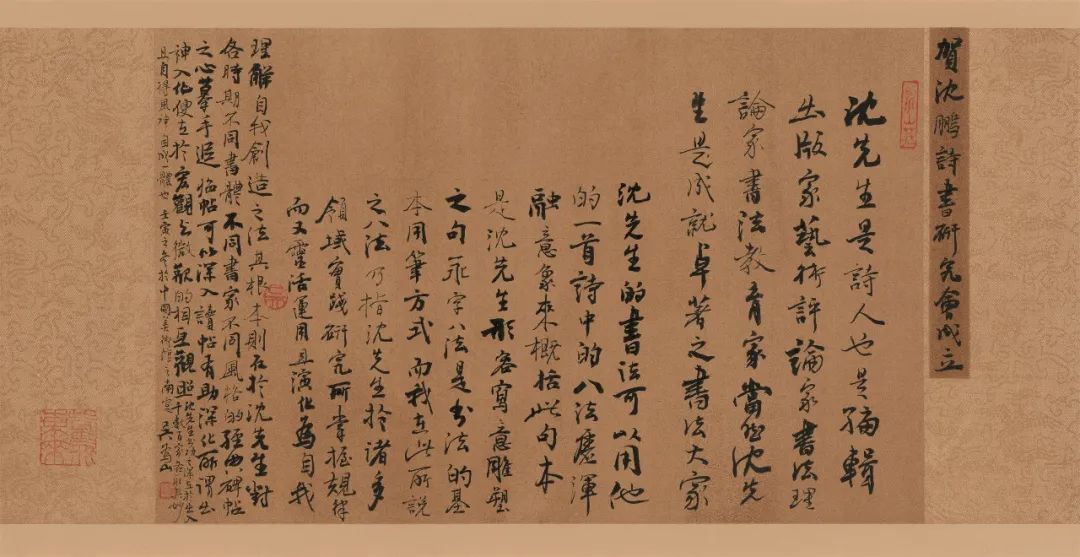 賀沈鵬詩書研究會成立
沈先生是詩人也是編輯
出版家藝術評論家書法理
論家書法教育家當然沈先
生是成就卓著之書法大家
沈先生的書法可以用他
的一首詩中的八法塵渾
融意象來概括此句本
是沈先生形容寫意雕塑
之句永字八法是书法的基
本用筆方式而我在此所說
之八法乃指沈先生於諸多
領域實踐研究所掌握規律
而又靈活運用且演化為自我
理解自我創造之法其根本則在於沈先生對
各時期不同書體不同書家不同風格的經典碑帖
之心摹手追臨帖可以深入讀帖有助深化所謂出
神入化便在於宏觀與微觀的相互觀照
沈先生書法之深在於出入
千載百家
且自得風神自成一體也壬寅之冬於中國美術館之南窗吳為山